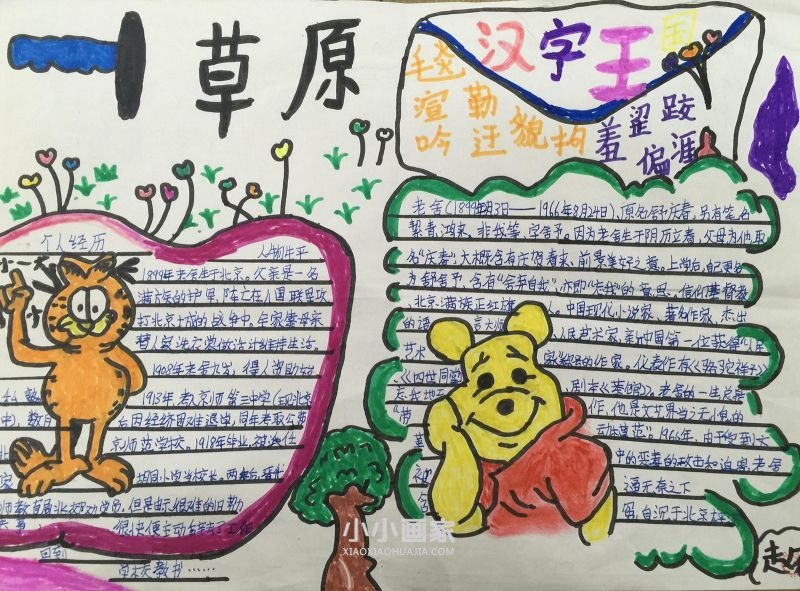 草原
汉字王国
毛
渲 勒
吟 迂 貌 拘
羞 涩 跤
偏 涯
个人经历
人物生平
1899年老舍生于北京。父亲是一名
满族的护军,阵亡在八国联军攻
打北京城的战争中。全家靠母亲
替人家洗衣裳做活计维持生活。
1908年老舍九岁,得人资助始
1913年考
京师第三中学(现北京
后因经济困难退学,同年考取公费
京师范学校。1918年毕业,
小学当校长。两年后,
但是由于很难的旧勤
很快便主动辞去了工作
回到
学校教书……
老舍(1899年2月3日——1966年8月24日),原名舒庆春,另有笔名
絜青、鸿来、非我等,字舍予。因为老舍生于阴历立春,父母为他取
名“庆春”,大概含有庆贺春来、前景美好之意。上学后,自己更名
为舒舍予,含有“舍弃自我”,亦即“忘我”的意思。信仰基督教
北京满族正红旗人。中国现代小说家、著名作家,杰出
的语言大师、人民艺术家,新中国第一位获得“人民
艺术家”称号的作家。代表作有《骆驼祥子》
《四世同堂
剧本《茶馆》。老舍的一生
忘我地
作,他是文艺界当之无愧的
“劳
动模范”。1966年,由于受到文
中的恶毒的攻击和迫害,老舍
被
逼无奈之下
含
自沉于北京太
小小画家
XIAOXIAOHUAJIA.COM